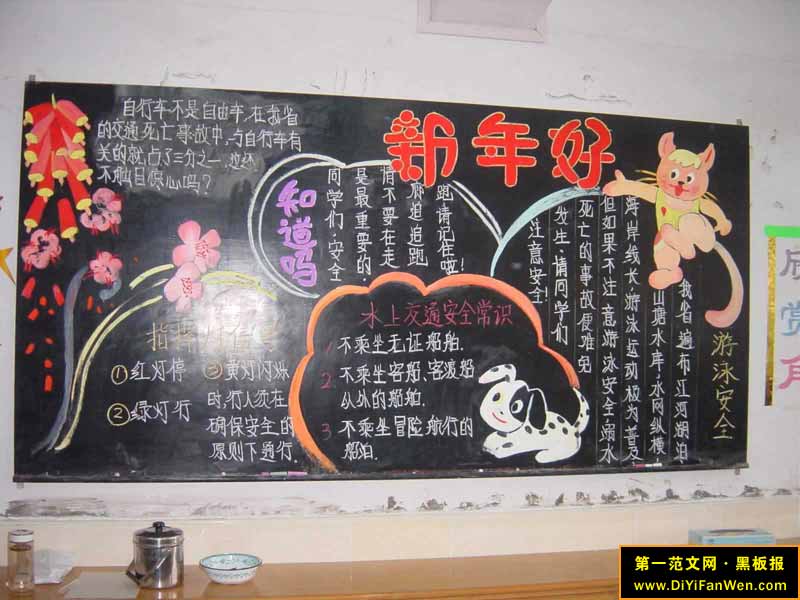 新年好
自行车不是自由车,在我省
的交通死亡事故中,与自行车有
关的就占了三分之一,
不
知道吗
同学们,安全
是最重要的
情不要在走
廊追追跑
跑请记住啦!
指挥灯信号
①红灯停
②绿灯行
③黄灯闪烁
时,行人须在
确保安全的
原则下通行.
水上交通安全常识
1 不乘坐无证船舶.
2. 不乘坐客船、客渡船
以外的船舶.
3 不乘坐冒险航行的
船舶.
游泳安全
我省遍布江河湖泊
山塘水库,水网纵横
海岸线长,游泳运动极为普及
但如果不注意游泳安全,溺水
死亡的事故便难免
发生,请同学们
注意安全!
质
赏
角
第一范文网·黑板报
www.DiYiFanWen.com